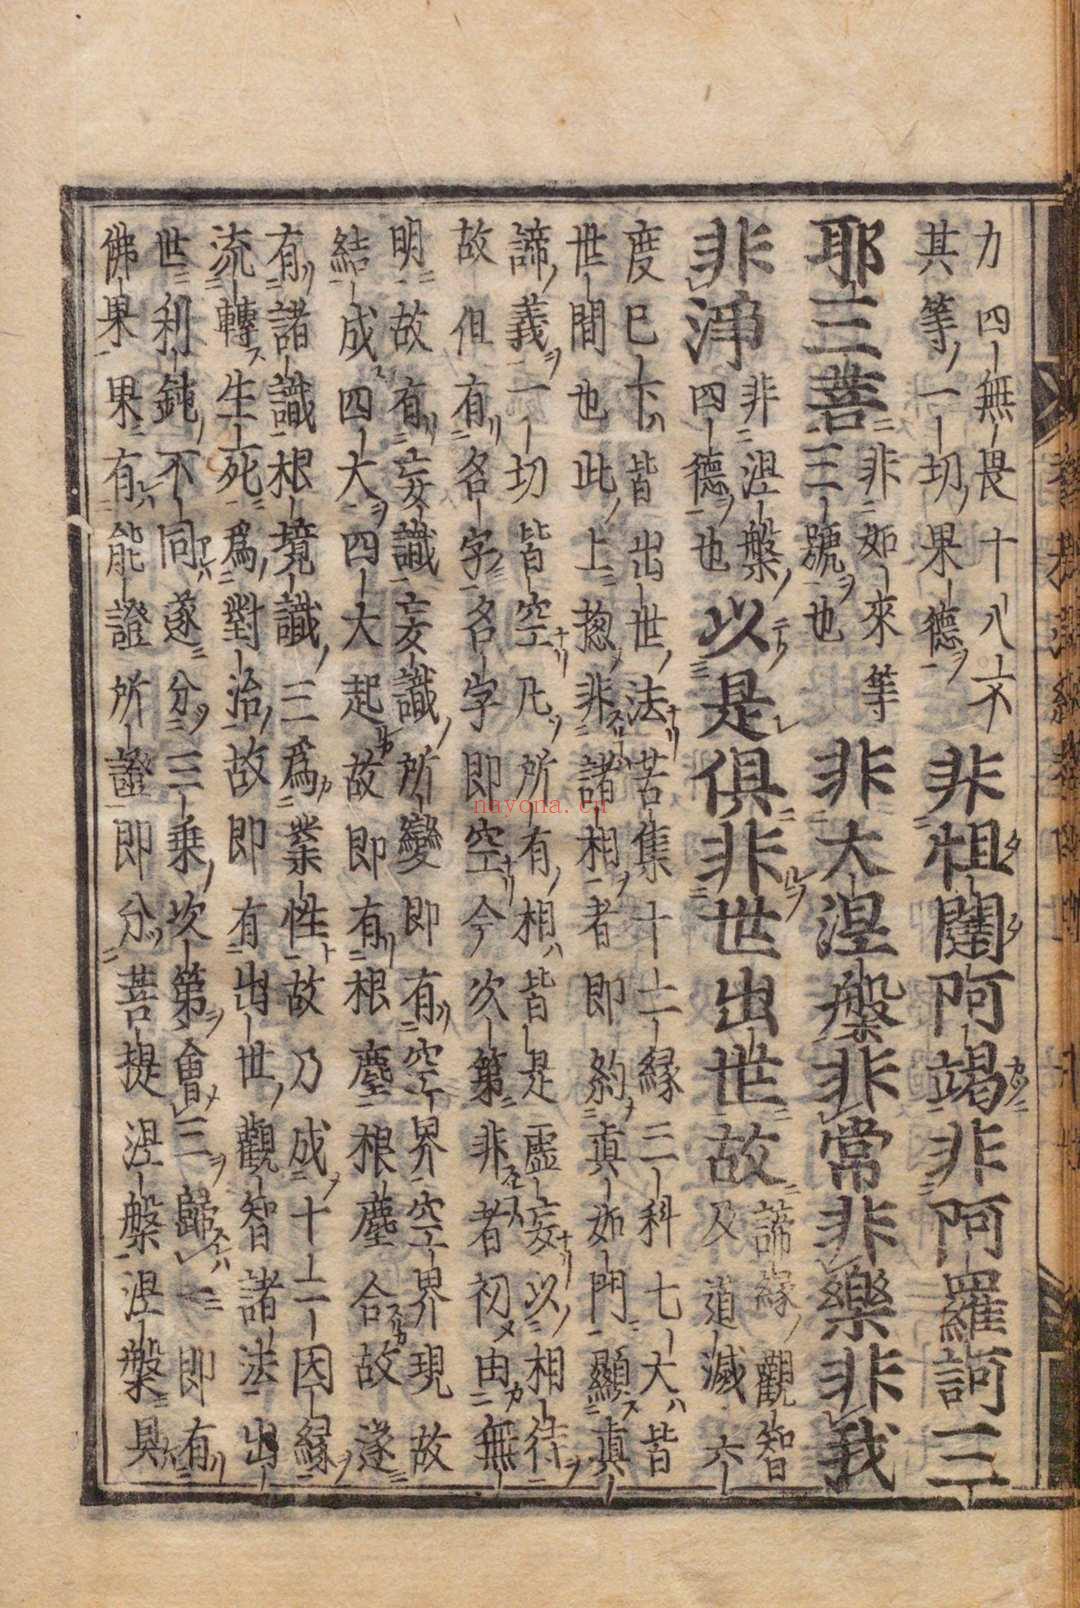 力四無畏十八不其等一切果德非怛闥阿竭非阿羅訶三
耶三菩非如來等三號也非大涅槃非常非樂非我
非淨非涅槃四德也以是俱非世出世故諦緣觀智及道滅六
度已卞皆出世法苦集十二緣三科七大皆
世間也此上揔非諸相者即約真如門顯真
諦義一切皆空凡所有相皆是虛妄以相待
故但有名字名字即空今次第非者初由無
明故有妄識妄識所變即有空界空界現故
結成四大四大起故即有根塵根塵合故遂
有諸識根境識三爲業性故乃成十二因緣
流轉生死爲對治故即有出世觀智諸法出
世利鈍不同遂分三乘次第會三歸一即有
佛果果有能證所證即分菩提涅槃涅槃具
nayona.cn